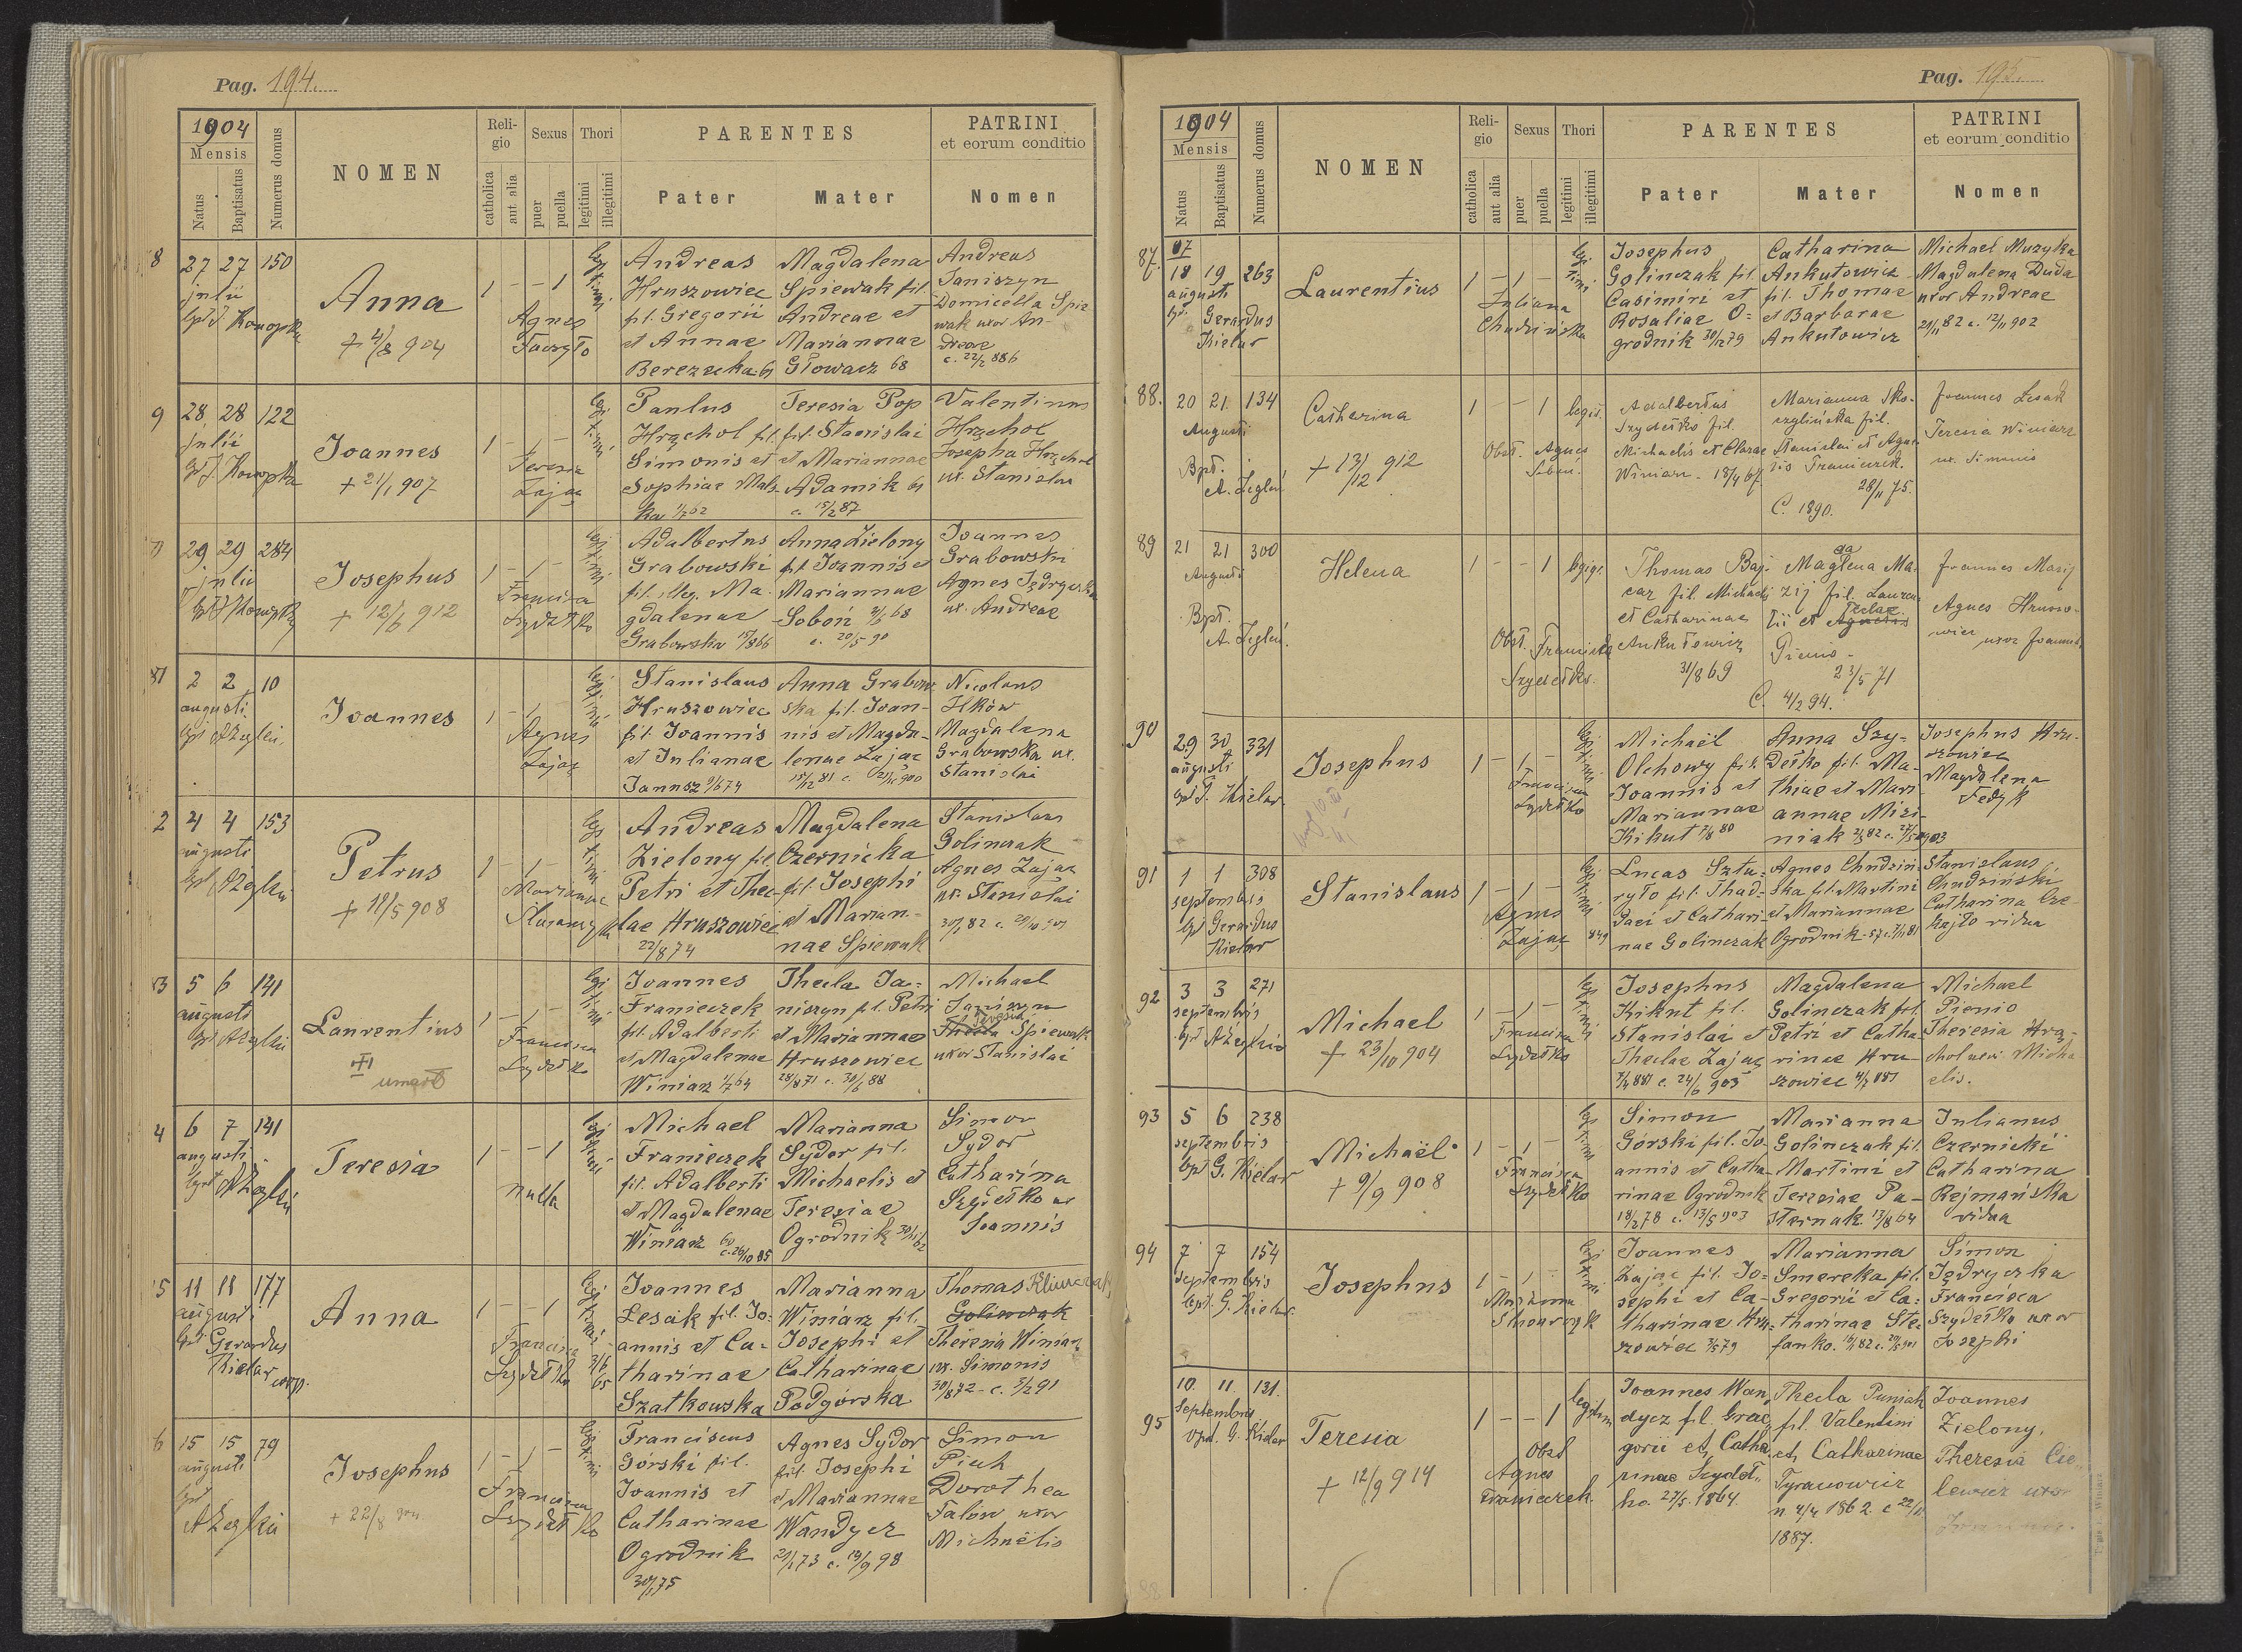 Pag. 194.
1904
Mensis
Natus
Baptisatus
Numerus domus
NOMEN
Religio
catholica
aut alia
Sexus
puer
puella
Thori
legitimi
illegitimi
PARENTES
Pater
Mater
PATRINI
et eorum conditio
Nomen
8
27 27 150
julii
Bpt J. Konopka
Anna
+ 4/8 904
1 - - 1
Agnes
legitimi
Andreas
Hruszowiec
fil. Gregorii
et Annae
Berezecka 61
Magdalena
Spiewak fil.
Andreae et
Mariannae
Głowacz 68
Andreas
Janiszyn
Domicella Spie
wak uxor An-
dreae
c. 22/2 886
9
28 28 122
julii
Bpt J. Konopka
Joannes
+ 21/1 907
1 - 1 -
Teresia
Zając
legitimi
Paulus
Hrzchol fil.
Simonis et
Sophiae Mals-
ka 1/7 62
Teresia Pop
fil. Stanislai
et Mariannae
Adamik 61
c. 15/2 87
Valentinus
Hrzchol
Josepha Hrzchol
ux. Stanislai
29 29 284
julii
Bpt J. Konopka
Josephus
+ 12/6 912
1 - 1 -
Francisca
Szydełko
legitimi
Adalbertus
Grabowski
fil. illeg. Ma-
gdalenae
Grabowska 15/8 66
Anna Zielony
fil. Joannis et
Mariannae
Soboń 2/6 68
c. 20/5 90
Joannes
Grabowski
Agnes Jędryczka
ux. Andreae
81
2 2 10
augusti
Joannes
1 - 1 -
Agnes
Zając
legitimi
Stanislaus
Hruszowiec
fil. Joannis
et Julianae
Janusz 9/6 74
Anna Grabow
ska fil. Joan-
nis et Magda-
lenae Zając
15/12 81 c. 21/11 900
Nicolaus
Ilków
Magdalena
Grabowska ux.
Stanislai
2
4 4 153
augusti
Petrus
+ 18/5 908
1 - 1 -
Marianna
legitimi
Andreas
Zielony fil.
Petri et Thec-
lae Hruszowiec
22/8 74
Magdalena
Czernicka
fil. Josephi
et Marian-
nae Spiewak
Stanislaus
Golinczak
Agnes Zając
ux. Stanislai
83
5 6 141
augusti
Laurentius
umarł
1 - 1 -
Francisca
Szydełko
legitimi
Joannes
Franieczek
fil. Adalberti
et Magdalenae
Winiarz 1/7 64
Thecla Ja-
niszyn fil. Petri
et Mariannae
Hruszowiec
28/8 71 c. 30/6 88
Michael
Janiszyn
Teresia
Spiewak
uxor Stanislai
4
6 7 141
augusti
Teresia
1 - - 1
nulla
legitimi
Michael
Franieczek
fil. Adalberti
et Magdalenae
Winiarz 60
c. 26/10 85
Marianna
Sydor fil.
Michaelis et
Teresiae
Ogrodnik 30/11 62
Simon
Sydor
Catharina
Szydełko ux
Joannis
5
11 11 177
augusti
Bpt Gerardus
Kielar
Anna
1 - - 1
Francisca
Szydełko
legitimi
Joannes
Lesak fil. Jo-
annis et Ca-
tharinae
Szatkowska
Marianna
Winiarz fil.
Josephi et
Catharinae
Podgórska
Thomas
Golinczak
Theresia Winiarz
ux. Simonis
30/8 72 - c. 3/2 91
6
15 15 79
augusti
Bpt
Josephus
+ 22/8 904
1 - 1 -
Francisca
Szydełko
legitimi
Franciscus
Górski fil.
Joannis et
Catharinae
Ogrodnik
Agnes Sydor
fil. Josephi
et Mariannae
Wandycz
21/1 73 c. 19/9 98
Simon
Piuk
Dorothea
Falow uxor
Michaëlis
Pag. 195.
1904
Mensis
Natus
Baptisatus
Numerus domus
NOMEN
Religio
catholica
aut alia
Sexus
puer
puella
Thori
legitimi
illegitimi
PARENTES
Pater
Mater
PATRINI
et eorum conditio
Nomen
87.
18 19 263
augusti
Bpt. Gerardus
Kielar
Laurentius
1 - 1 -
Juliana
Chudzińska
legitimi
Josephus
Golinczak fil.
Casimiri et
Rosaliae O-
grodnik 30/12 79
Catharina
Ankutowicz
fil. Thomae
et Barbarae
Ankutowicz
Michael Muzyka
Magdalena Duda
uxor Andreae
21/11 82 c. 12/11 902
88.
20 21. 134
Augusti
Bpt.
Catharina
+ 13/12 912
1 - - 1
Obst. Agnes
legit.
Adalbertus
Szydełko fil.
Michaelis et Clarae
Winiarz - 18/4 67.
Marianna Sko-
czylińska fil.
Stanislai et Agne-
tis Franieczek.
28/11 75.
C. 1890.
Joannes Lesak
Teresa Winiarz
ux. Simonis
89
21 21 300
Augusti
Bpt.
Helena
1 - - 1
Obst. Francisca
Szydełko.
legit.
Thomas Baj-
car fil. Michaelis
et Catharinae
Ankutowicz
31/8 69
Magdalena Ma-
zij fil. Lauren-
tii et Agnetis
Teclae
Pienio -
23/5 71
C. 4/2 94.
Joannes Mazij
Agnes Hruszo-
wiec uxor Joannis
90
29 30 331
augusti
Bpt G. Kielar
Josephus
1 - 1 -
Francisca
Szydełko
legitimi
Michaël
Olchowy fil.
Joannis et
Mariannae
Kikut 2/8 80
Anna Szy-
dełko fil. Ma-
thiae et Mari-
annae Mizi-
niak
Josephus Hru-
szowiec
Magdalena
Fedyk
91
1 1 308
septembris
Bpt Gerardus
Kielar
Stanislaus
1 - 1 -
Agnes
Zając
legitimi
Lucas Sztu-
ryło fil. Thad-
daei et Cathari-
nae Golinczak
Agnes Chudziń-
ska fil. Martini
et Mariannae
Ogrodnik
Stanislaus
Chudziński
Catharina Cze-
kajło vidua
92
3 3 271
septembris
Michael
+ 23/10 904
1 - 1 -
Francisca
Szydełko
legitimi
Josephus
Kikut fil.
Stanislai et
Theclae Zając
Magdalena
Golinczak fil.
Petri et Catha-
rinae Hru-
szowiec
Michael
Pienio
Theresia Hrz-
chol uxor Micha
elis.
93
5 6 238
septembris
Bpt G. Kielar
Michaël
+ 9/9 908
1 - 1 -
Francisca
Szydełko
legitimi
Simon
Górski fil. Jo-
annis et Catha-
rinae Ogrodnik
18/2 78 c. 13/5 903
Marianna
Golinczak fil.
Martini et
Teresiae Pa-
sternak 13/8 64
Julianus
Czernicki
Catharina
Rejmańska
vidua
94
7 7 154
septembris
bapt. G. Kielar.
Josephus
1 - 1 -
Marianna
legitimi
Joannes
Zając fil. Jo-
sephi et Ca-
tharinae Hru-
szowiec 3/5 79
Marianna
Smereka fil.
Gregorii et Ca-
tharinae Ste-
fanko.
Simon
Jędryczka
Francisca
Szydełko uxor
Josephi
95
10. 11. 131.
Septembris
Bpt. G. Kielar
Teresia
+ 12/9 914
1 - - 1
Obst
Agnes
Franieczek.
legitimi
Joannes Wan-
dycz fil. Gre-
gorii et Catha-
rinae Szydeł-
ko. 27/5. 1864.
Thecla Puniak
fil. Valentini
et Catharinae
Tyranowicz
n 4/4 1862. c 22/11
1887.
Joannes
Zielony.
Theresia Cie-
lewicz uxor